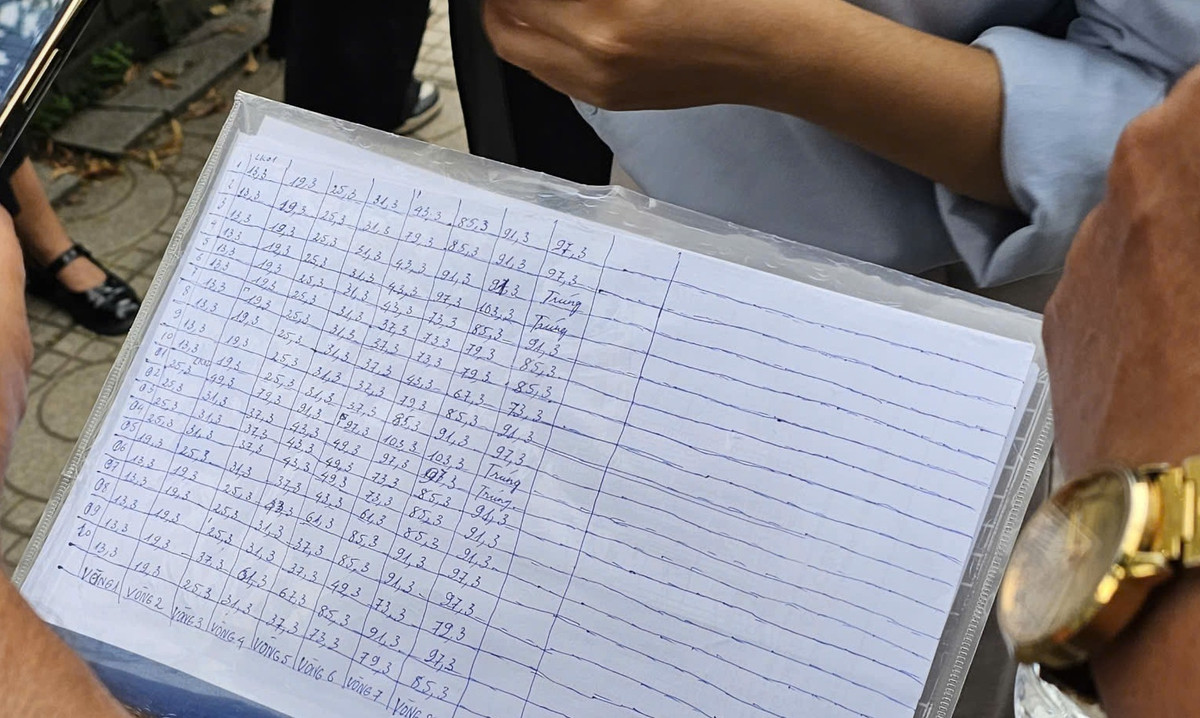 LK01
1 13,3 19,3 25,3 31,3 43,3 85,3 91,3 97,3
2 13,3 19,3 25,3 31,3 79,3 85,3 91,3 97,3
3 13,3 19,3 25,3 31,3 43,3 91,3 91,3 Trúng
4 13,3 19,3 25,3 31,3 43,3 97,3 103,3 Trúng
5 13,3 19,3 25,3 31,3 43,3 73,3 85,3 91,3
6 13,3 19,3 25,3 31,3 37,3 73,3 79,3 85,3
7 13,3 19,3 25,3 31,3 37,3 73,3 79,3 85,3
8 13,3 25,3 31,3 37,3 43,3 67,3 73,3
9 13,3 19,3 25,3 31,3 37,3 79,3 85,3 91,3
10 13,3 19,3 25,3 31,3 37,3 85,3 91,3 97,3
01 25,3 49,3 79,3 91,3 97,3 103,3 103,3 Trúng
02 25,3 31,3 37,3 43,3 49,3 97,3 97,3 Trúng
03 25,3 31,3 37,3 43,3 49,3 73,3 85,3 91,3
04 25,3
05 19,3 25,3 31,3 37,3 43,3 61,3 85,3 91,3
06 13,3 19,3 25,3 43,3 61,3 85,3 91,3 97,3
07 13,3 19,3 25,3 31,3 37,3 85,3 91,3 97,3
08 13,3 19,3 25,3 31,3 37,3 49,3 73,3 79,3
09 13,3 19,3 37,3 61,3 67,3 85,3 91,3 97,3
10 13,3 19,3 25,3 31,3 37,3 73,3 79,3 85,3
VÒNG 1 VÒNG 2 VÒNG 3 VÒNG 4 VÒNG 5 VÒNG 6 VÒNG 7 VÒNG